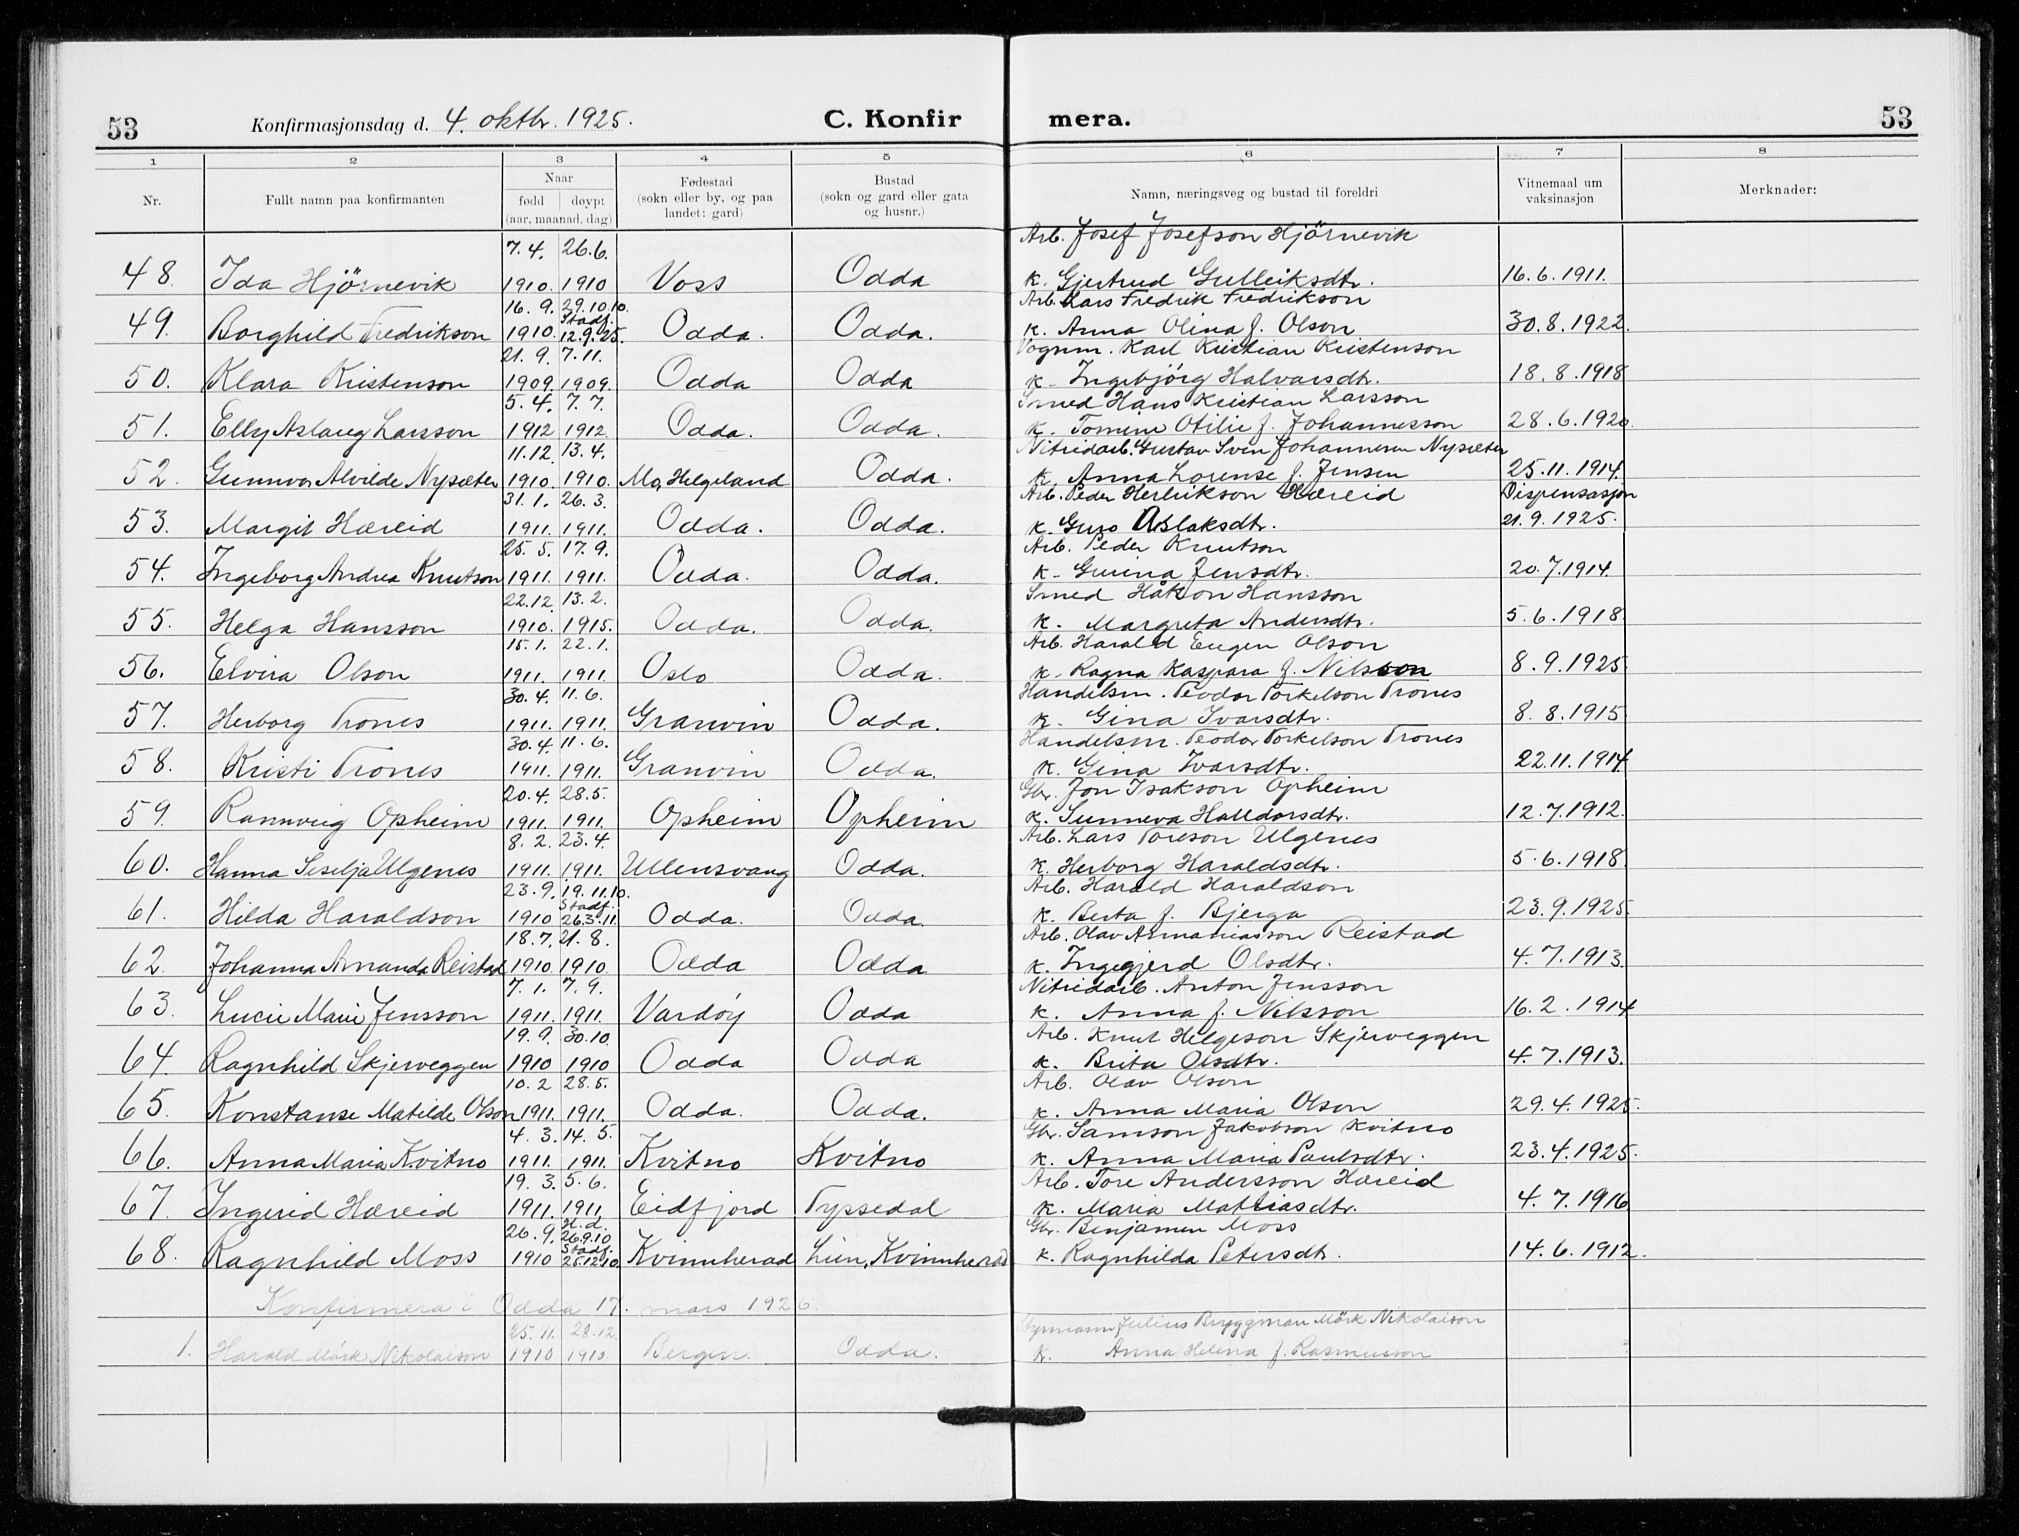 53 Konfirmasjonsdag d. 4. oktbr. 1925. C. Konfir mera. 53
1 2 3 4 5 6 7 8
Nr. Fullt namn paa konfirmanten Naar fødd døypt (aar, maanad, dag) Fødestad (sokn eller by, og paa landet: gard) Bustad (sokn og gard eller gata og husnr.) Namn, næringsveg og bustad til foreldri Vitnemaal um vaksinasjon Merknader:
7.4. 26.6. Arb. Josef Josefson Hjörnevik
48. Ida Hjörnevik 1910. 1910 Voss Odda k. Gjertrud Gulleiksdtr. 16.6.1911.
16.9. 29.10.10. Stadf. Arb. Lars Fredrik Fredrikson
49. Borghild Fredrikson 1910. 12.9.25. Odda. Odda. k. Anna Olina f. Olson 30.8.1922.
21.9. 7.11. Vognm. Karl Kristian Kristenson
50. Klara Kristenson 1909. 1909. Odda Odda k. Ingebjörg Halvarsdtr. 18.8.1918
5.4. 7.7. Smed Hans Kristian Larsson
51. Elly Aslaug Larsson 1912 1912. Odda. Odda. k. Tomine Otilie f. Johannesson 28.6.1920.
11.12. 13.4. Nitridarb. Gustav Svin Johannesen Nysæter
52. Gunnvor Alvilde Nysæter 1910. 1910. Mo, Helgeland Odda. k. Anna Lorense f. Jensen 25.11.1914.
31.1. 26.3. Arb. Peder Herleikson Hæreid Dispensasjon
53. Margit Hæreid 1911. 1911. Odda. Odda. k. Guro Aslaksdtr. 21.9.1925.
25.5. 17.9. Arb. Peder Knutson
54. Ingeborg Andrea Knutson 1911. 1911. Odda. Odda. k. Gurina Jensdtr. 20.7.1914.
22.12. 13.2. Smed Håkon Hansson
55. Helga Hansson 1910. 1915. Odda. Odda. k. Margreta Andersdtr. 5.6.1918.
15.1. 22.1. Arb. Harald Eugen Olson
56. Elvira Olson 1911. 1911. Oslo Odda. k. Ragna Kaspara f. Nilsson 8.9.1925.
30.4. 11.6. Handelsm. Teodor Torkelson Trones
57. Herborg Trones 1911. 1911. Granvin Odda. k. Gina Ivarsdtr. 8.8.1915.
30.4. 11.6. Handelsm. Teodor Torkelson Trones
58. Kristi Trones 1911. 1911. Granvin Odda. k. Gina Ivarsdtr. 22.11.1914
20.4. 28.5. Gbr. Jon Isakson Opheim
59. Rannveig Opheim 1911. 1911. Opheim Opheim k. Sunneva Halldorsdtr. 12.7.1912.
8.2. 23.4. Arb. Lars Toreson Ulgenes
60. Hanna Sesilja Ulgenes 1911. 1911. Ullensvang Odda. k. Herborg Haraldsdtr. 5.6.1918.
23.9. 19.11.10. Stadf. Arb. Harald Haraldson
61. Hilda Haraldson 1910 26.3.11. Odda. Odda. k. Berta f. Bjerga 23.9.1925.
18.7. 21.8. Arb. Olav Annaniasson Reistad
62. Johanna Amanda Reistad 1910 1910. Odda Odda k. Ingegjerd Olsdtr. 4.7.1913.
7.1. 7.9. Nitridarb. Anton Jensson
63. Lucie Marie Jensson 1911. 1911. Vardöy Odda k. Anna f. Nilsson 16.2.1914
19.9. 30.10. Arb. Knut Helgeson Skjerveggen
64. Ragnhild Skjerveggen 1910 1910 Odda Odda k. Brita Olsdtr. 4.7.1913.
10.2 28.5. Arb. Olav Olson
65. Konstanse Matilde Olson 1911. 1911. Odda. Odda. k. Anna Maria Olson 29.4.1925.
4.3. 14.5. Gbr. Samson Jakobson Kvitno
66. Anna Maria Kvitno 1911. 1911. Kvitno Kvitno k. Anna Maria Paulsdtr. 23.4.1925.
19.3. 5.6. Arb. Tore Andersson Hæreid
67. Ingerid Hæreid 1911. 1911. Eidfjord Tyssedal k. Maria Mattiasdtr. 4.7.1916
26.9. H.d. 26.9.10 Stadf. Gbr. Benjamen Moss
68. Ragnhild Moss 1910 25.12.10. Kvinnherad Lien, Kvinnherad k. Ragnhilda Petersdtr. 14.6.1912.
Konfirmera i Odda 17. mars 1926.
25.11. 28.12. Styrmann Julius Bryggman Mörk Nikolaison
1. Harald Mörk Nikolaison 1910 1910 Bergen. Odda. k. Anna Helena f. Rasmusson